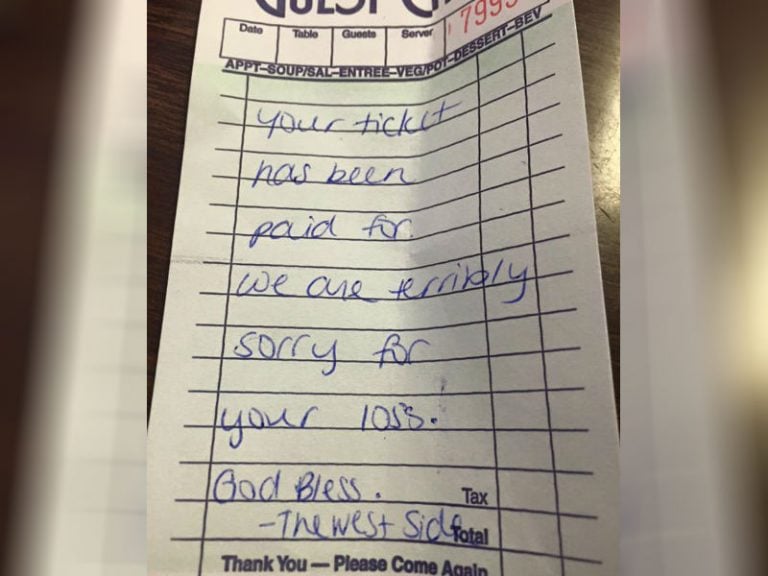 GUEST
7995
Date Table Guests Server
APPT-SOUP/SAL-ENTREE-VEG/POT-DESSERT-BEV
your ticket
has been
paid for
we are terribly
sorry for
your loss.
God Bless. Tax
-The west side Total
Thank You — Please Come Again